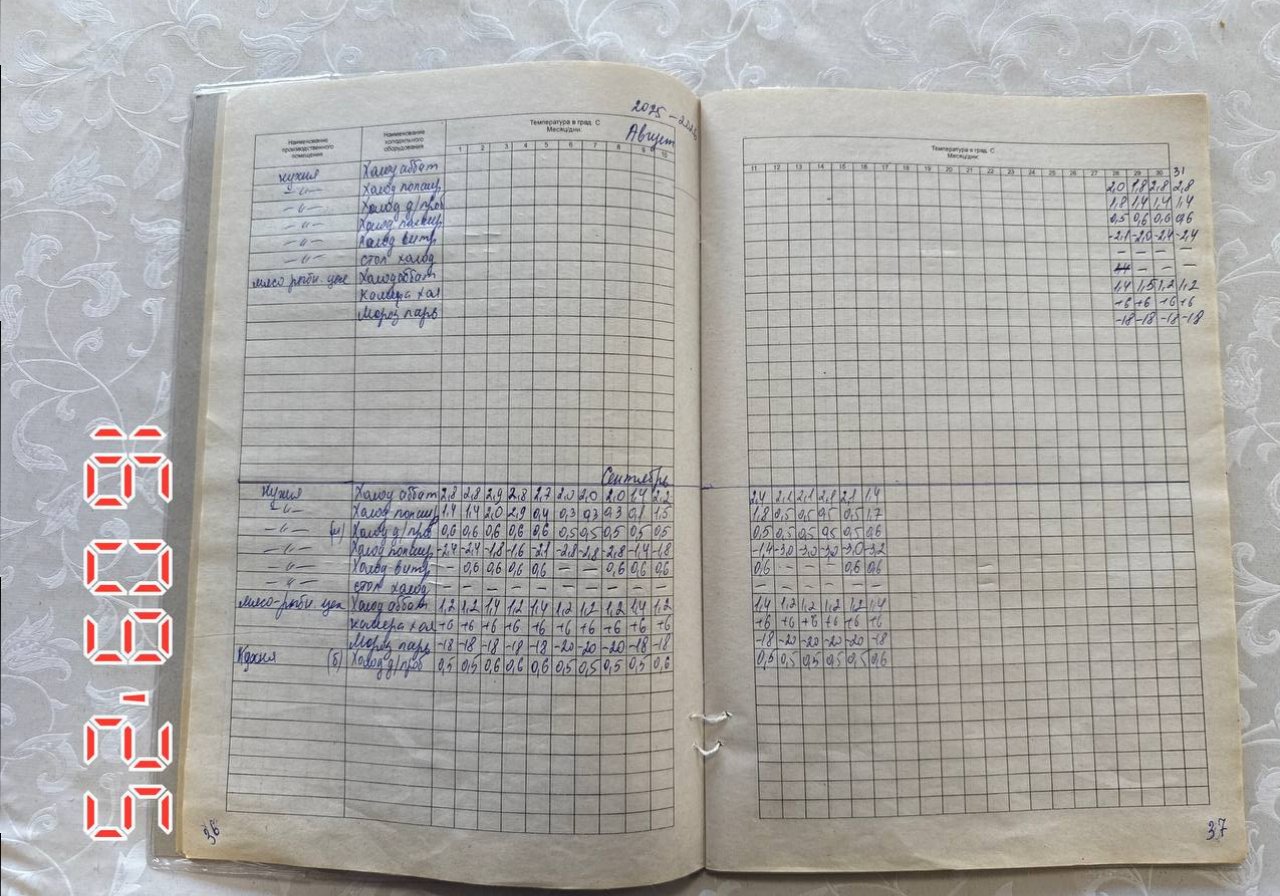 2025 –
Август
Наименование производственного помещения
Наименование холодильного оборудования
Температура в град. С
Месяц/дни:
1 2 3 4 5 6 7 8 9 10
Температура в град. С
Месяц/дни:
11 12 13 14 15 16 17 18 19 20 21 22 23 24 25 26 27 28 29 30 31
кухня Холод аббат 2,0 1,8 2,8 2,8
–"– Холод 1,8 1,4 1,4 1,4
–"– Холод д/проб 0,5 0,6 0,6 0,6
–"– Холод -2,1 -2,0 -2,4 -2,4
–"– Холод витр – – – –
–"– стол холод – – –
мясо рыбн. цех Холод аббат 1,4 1,5 1,2 1,2
камера хол +6 +6 +6 +6
Мороз ларь -18 -18 -18 -18
Сентябрь
кухня Холод аббат 2,8 2,8 2,9 2,8 2,7 2,0 2,0 2,0 1,4 2,2 2,4 2,1 2,1 2,8 2,1 1,4
–"– Холод 1,4 1,4 2,0 2,9 0,4 0,3 0,3 0,3 0,8 1,5 1,8 0,5 0,5 0,5 0,5 1,7
–"– (м) Холод д/проб 0,6 0,6 0,6 0,6 0,6 0,5 0,5 0,5 0,5 0,5 0,5 0,5 0,5 0,5 0,5 0,6
–"– Холод -2,4 -2,4 -1,8 -1,6 -2,1 -2,8 -2,8 -2,8 -1,4 -1,8 -1,4 -3,0 -3,0 -3,0 -3,0 -3,2
–"– Холод витр – 0,6 0,6 0,6 0,6 – – 0,6 0,6 0,6 0,6 – – – 0,6 0,6
–"– стол холод – – – – – – – – – – – – – – –
мясо-рыбн. цех Холод аббат 1,2 1,2 1,4 1,2 1,4 1,2 1,2 1,2 1,4 1,2 1,4 1,2 1,2 1,2 1,2 1,4
камера хол +6 +6 +6 +6 +6 +6 +6 +6 +6 +6 +6 +6 +6 +6 +6 +6
Мороз ларь -18 -18 -18 -18 -18 -20 -20 -20 -18 -18 -18 -20 -20 -20 -20 -18
Кухня (б) Холод д/проб 0,5 0,5 0,6 0,6 0,6 0,5 0,5 0,5 0,5 0,6 0,5 0,5 0,5 0,5 0,5 0,6
36
37
16 09 '25